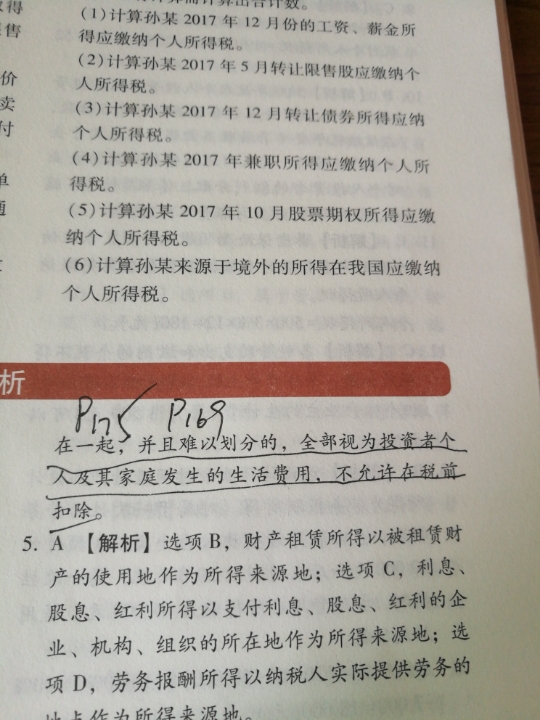 (1)计算孙某 2017 年 12 月份的工资、薪金所
得应缴纳个人所得税。
(2)计算孙某 2017 年 5 月转让限售股应缴纳个
人所得税。
(3)计算孙某 2017 年 12 月转让债券所得应纳
个人所得税。
(4)计算孙某 2017 年兼职所得应缴纳个人所
得税。
(5)计算孙某 2017 年 10 月股票期权所得应缴
纳个人所得税。
(6)计算孙某来源于境外的所得在我国应缴纳
个人所得税。
析
P175 P169
在一起，并且难以划分的，全部视为投资者个
人及其家庭发生的生活费用，不允许在税前
扣除。
5. A 【解析】选项 B，财产租赁所得以被租赁财
产的使用地作为所得来源地；选项 C，利息、
股息、红利所得以支付利息、股息、红利的企
业、机构、组织的所在地作为所得来源地；选
项 D，劳务报酬所得以纳税人实际提供劳务的
地点作为所得来源地。